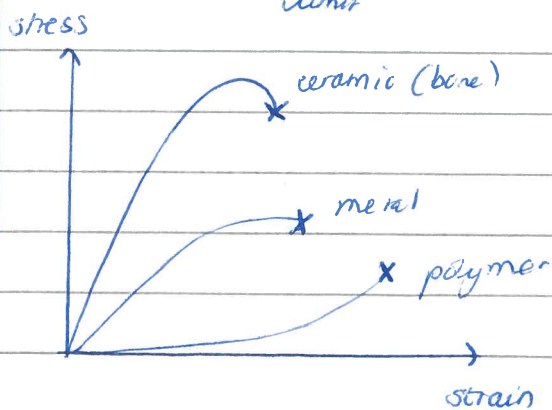 stress
ceramic (bone)
metal
polymer
strain